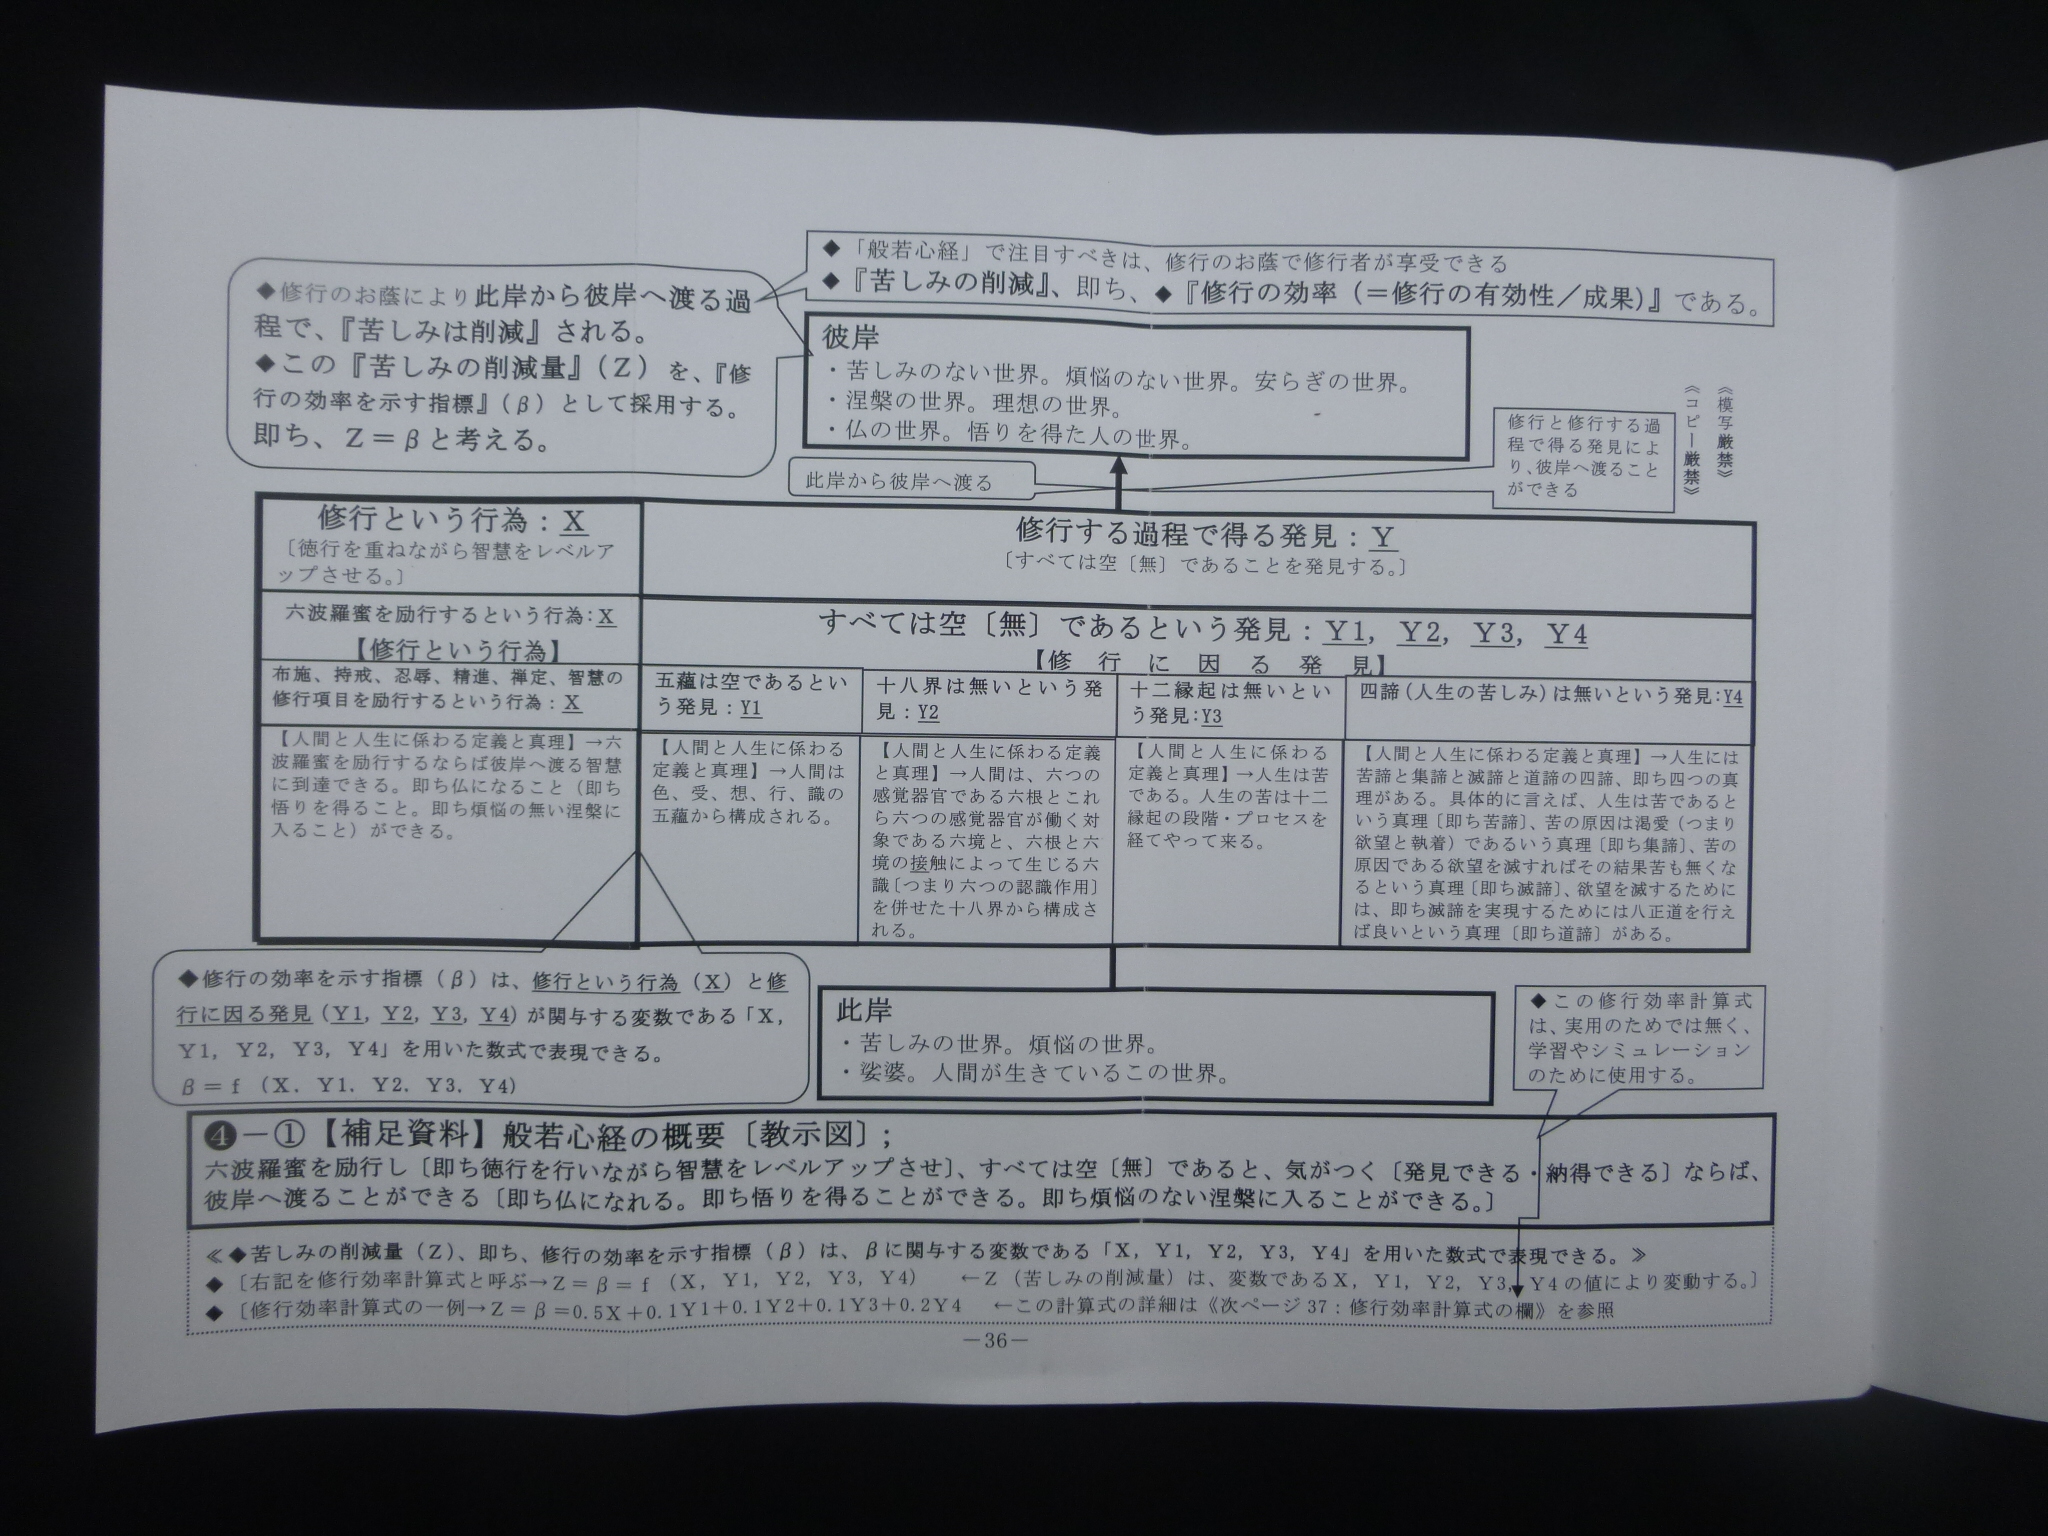 ◆「般若心経」で注目すべきは、修行のお蔭で修行者が享受できる
◆『苦しみの削減』、即ち、◆『修行の効率（＝修行の有効性／成果）』である。
◆修行のお蔭により此岸から彼岸へ渡る過
程で、『苦しみは削減』される。
◆この『苦しみの削減量』（Ｚ）を、『修
行の効率を示す指標』（β）として採用する。
即ち、Ｚ＝βと考える。
彼岸
・苦しみのない世界。煩悩のない世界。安らぎの世界。
・涅槃の世界。理想の世界。
・仏の世界。悟りを得た人の世界。
《模写厳禁》
《コピー厳禁》
修行と修行する過
程で得る発見によ
り、彼岸へ渡ること
ができる
此岸から彼岸へ渡る
修行という行為：X
〔徳行を重ねながら智慧をレベルア
ップさせる。〕
修行する過程で得る発見：Y
〔すべては空〔無〕であることを発見する。〕
六波羅蜜を励行するという行為：X
【修行という行為】
すべては空〔無〕であるという発見：Y1, Y2, Y3, Y4
【修行に因る発見】
布施、持戒、忍辱、精進、禅定、智慧の
修行項目を励行するという行為：X
五蘊は空であるとい
う発見：Y1
十八界は無いという発
見：Y2
十二縁起は無いとい
う発見：Y3
四諦（人生の苦しみ）は無いという発見：Y4
【人間と人生に係わる定義と真理】→六
波羅蜜を励行するならば彼岸へ渡る智慧
に到達できる。即ち仏になること（即ち
悟りを得ること。即ち煩悩の無い涅槃に
入ること）ができる。
【人間と人生に係わる
定義と真理】→人間は
色、受、想、行、識の
五蘊から構成される。
【人間と人生に係わる定義
と真理】→人間は、六つの
感覚器官である六根とこれ
ら六つの感覚器官が働く対
象である六境と、六根と六
境の接触によって生じる六
識〔つまり六つの認識作用〕
を併せた十八界から構成さ
れる。
【人間と人生に係わる
定義と真理】→人生は苦
である。人生の苦は十二
縁起の段階・プロセスを
経てやって来る。
【人間と人生に係わる定義と真理】→人生には
苦諦と集諦と滅諦と道諦の四諦、即ち四つの真
理がある。具体的に言えば、人生は苦であると
いう真理〔即ち苦諦〕、苦の原因は渇愛（つまり
欲望と執着）であるいう真理〔即ち集諦〕、苦の
原因である欲望を滅すればその結果苦も無くな
るという真理〔即ち滅諦〕、欲望を滅するために
は、即ち滅諦を実現するためには八正道を行え
ば良いという真理〔即ち道諦〕がある。
◆修行の効率を示す指標（β）は、修行という行為（X）と修
行に因る発見（Y1, Y2, Y3, Y4）が関与する変数である「X,
Y1, Y2, Y3, Y4」を用いた数式で表現できる。
β＝f（X. Y1. Y2. Y3. Y4）
此岸
・苦しみの世界。煩悩の世界。
・娑婆。人間が生きているこの世界。
◆この修行効率計算式
は、実用のためでは無く、
学習やシミュレーション
のために使用する。
❹－①【補足資料】般若心経の概要〔教示図〕；
六波羅蜜を励行し〔即ち徳行を行いながら智慧をレベルアップさせ〕、すべては空〔無〕であると、気がつく〔発見できる・納得できる〕ならば、
彼岸へ渡ることができる〔即ち仏になれる。即ち悟りを得ることができる。即ち煩悩のない涅槃に入ることができる。〕
≪◆苦しみの削減量（Z）、即ち、修行の効率を示す指標（β）は、βに関与する変数である「X, Y1, Y2, Y3, Y4」を用いた数式で表現できる。≫
◆〔右記を修行効率計算式と呼ぶ→Z＝β＝f（X, Y1, Y2, Y3, Y4） ←Z（苦しみの削減量）は、変数であるX, Y1, Y2, Y3, Y4の値により変動する。〕
◆〔修行効率計算式の一例→Z＝β＝0.5X＋0.1Y1＋0.1Y2＋0.1Y3＋0.2Y4 ←この計算式の詳細は《次ページ37：修行効率計算式の欄》を参照
－36－